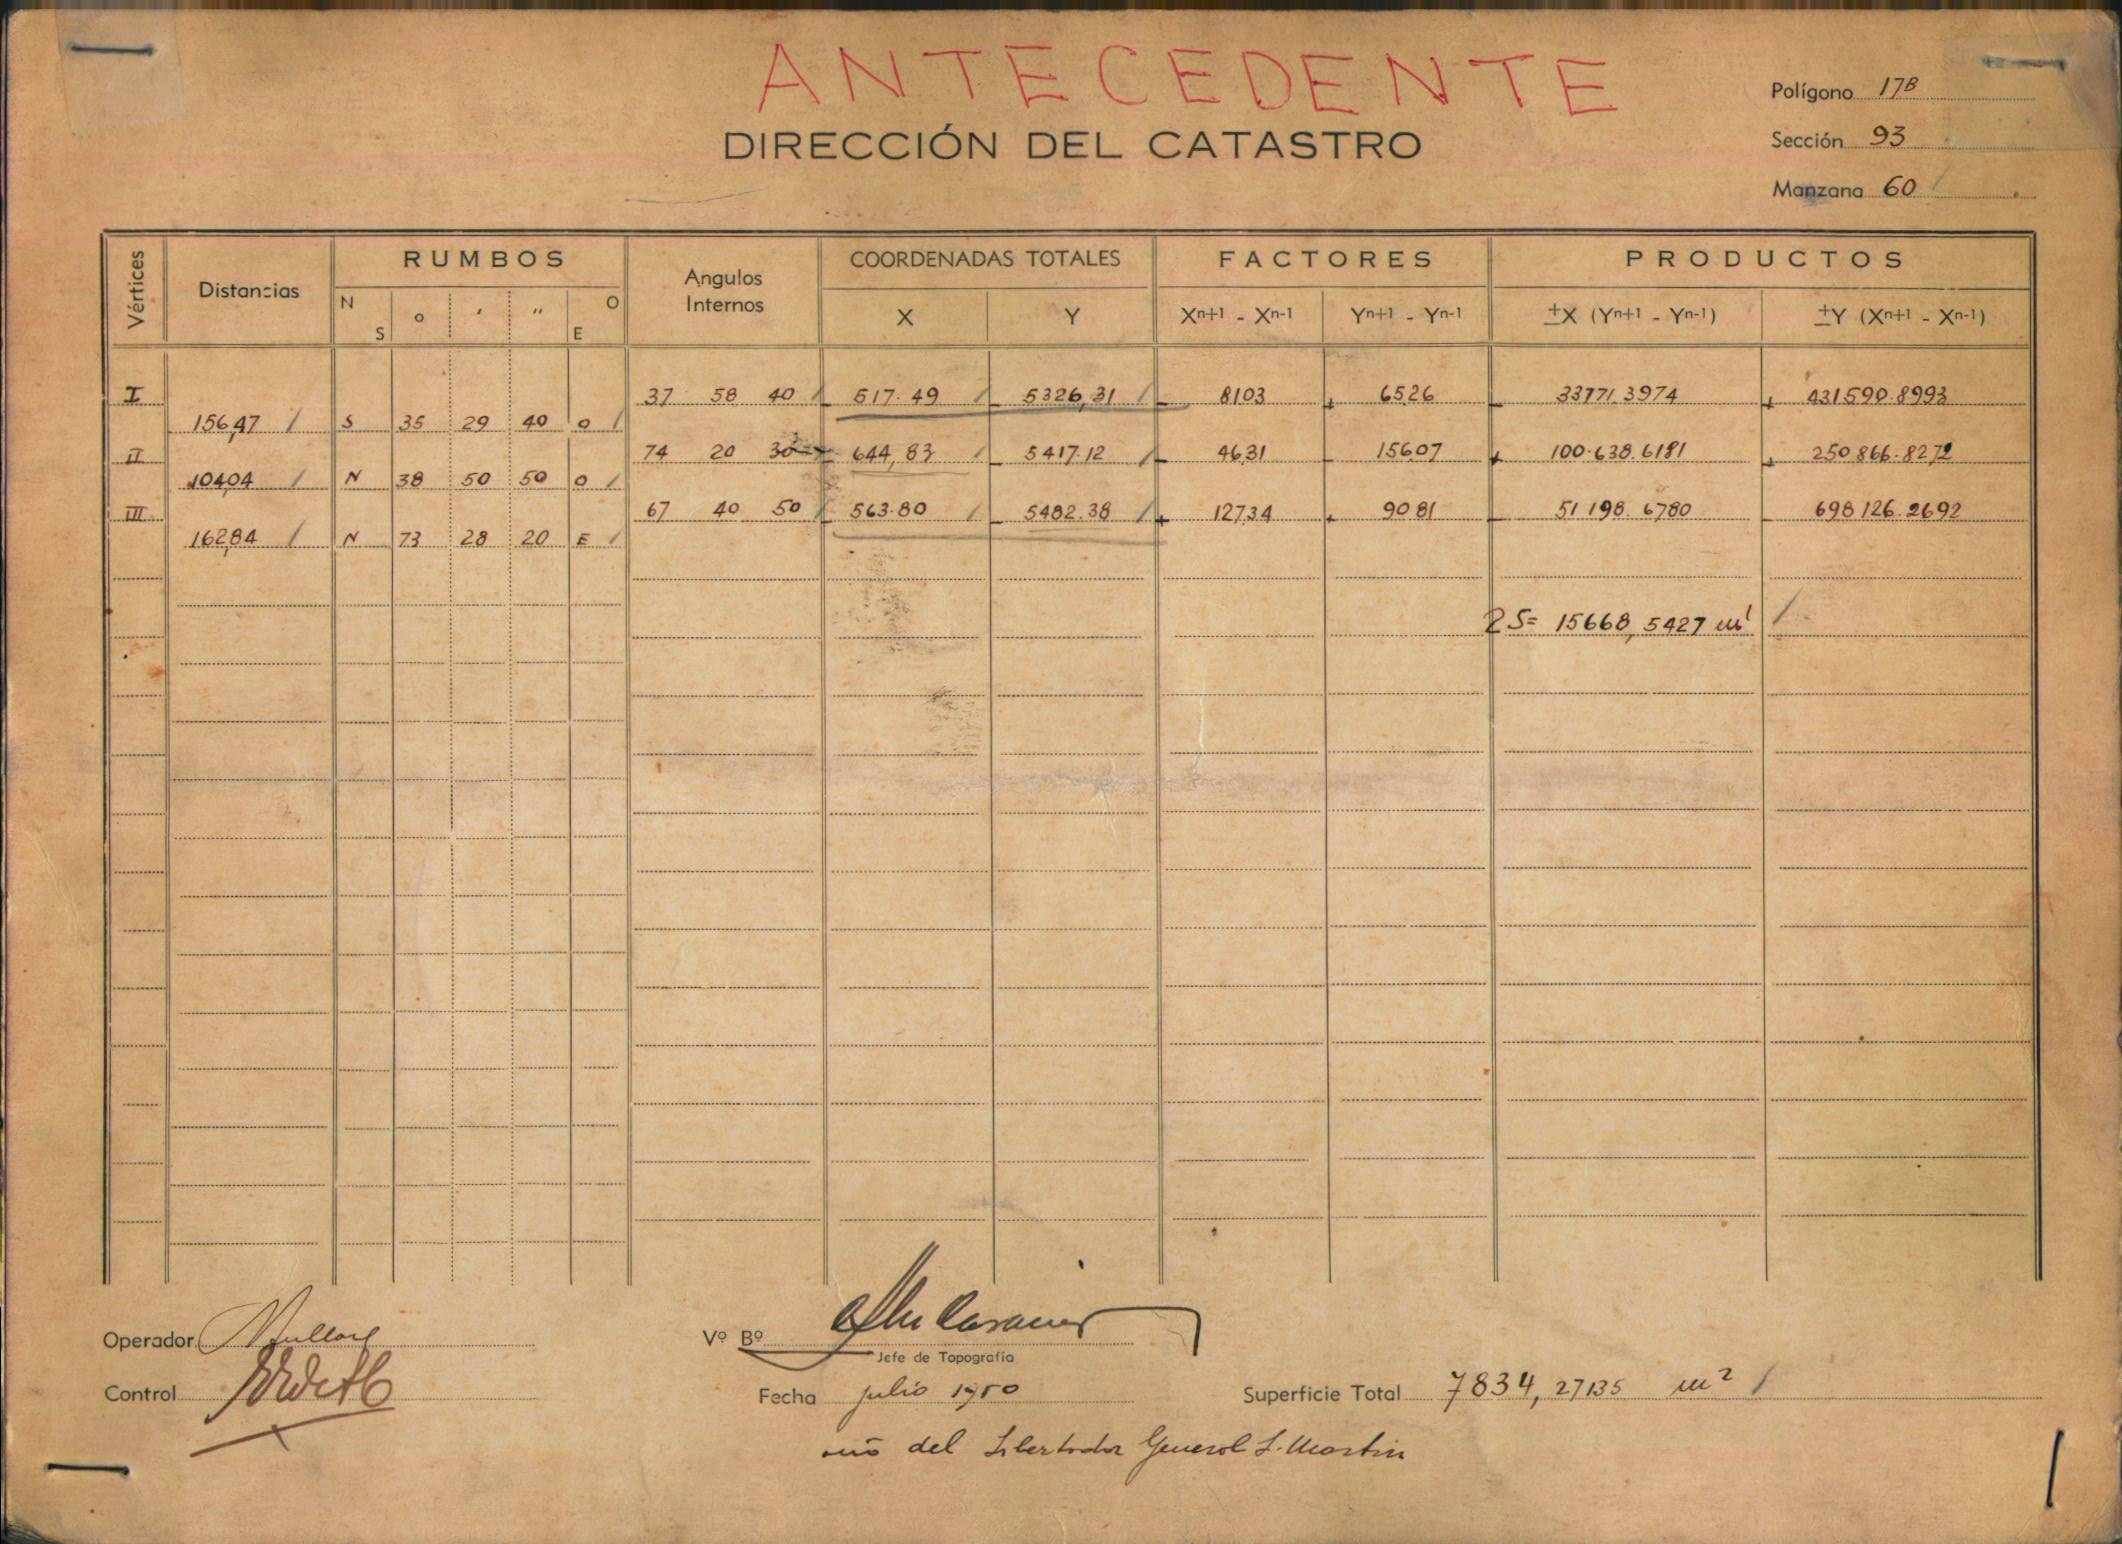 ANTECEDENTE
DIRECCIÓN DEL CATASTRO
Polígono 17B
Sección 93
Manzana 60
Vértices Distancias RUMBOS Angulos Internos COORDENADAS TOTALES FACTORES PRODUCTOS
N S o ' " O E X Y Xn+1 - Xn-1 Yn+1 - Yn-1 ±X (Yn+1 - Yn-1) ±Y (Xn+1 - Xn-1)
I 37 58 40 - 517.49 - 5326,31 - 8103 + 6526 - 33771.3974 + 431590.8993
156,47 S 35 29 40 O
II 74 20 30 - 644,83 - 5417.12 - 4631 - 15607 + 100.638.6181 + 250866.8272
104,04 N 38 50 50 O
III 67 40 50 - 563.80 - 5482.38 + 12734 + 9081 - 51198.6780 - 698126.2692
162,84 N 73 28 20 E
2S= 15668,5427 m²
Operador
Control
Vº Bº
Jefe de Topografía
Fecha julio 1950
Superficie Total 7834,27135 m²
año del Libertador General S. Martin